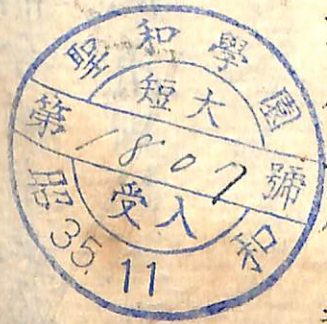 聖和學園
短大
第1807號
受入
昭和
35.11